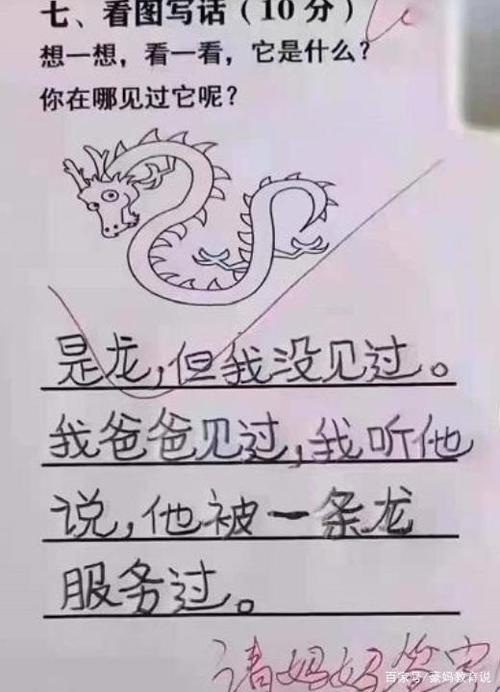 七、看图写话（10分）
想一想，看一看，它是什么？
你在哪见过它呢？
是龙，但我没见过。
我爸爸见过，我听他
说，他被一条龙
服务过。
请妈妈签字
百家号/豪妈教育说